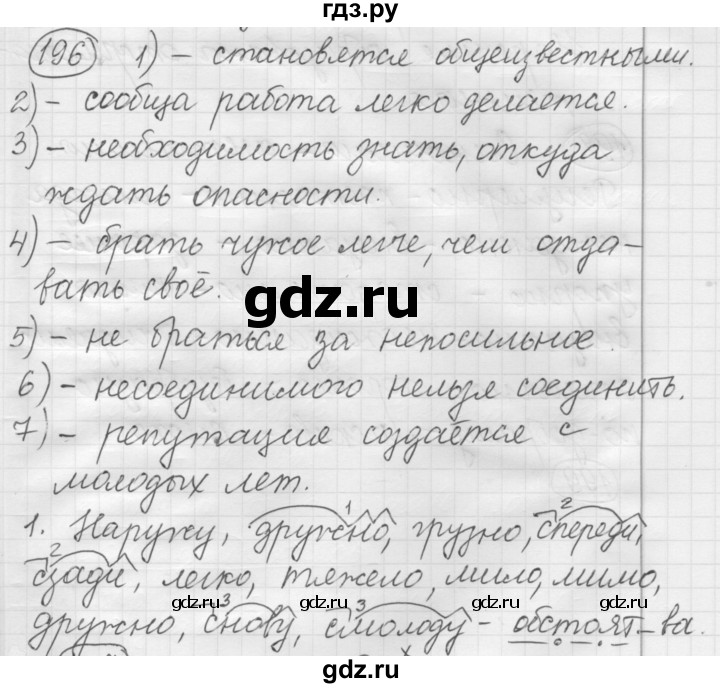 гдз.ру
196 1) – становятся общеизвестными.
2) – сообща работа легко делается.
3) – необходимость знать, откуда
ждать опасности.
4) – брать чужое легче, чем отда–
вать своё.
gdz.ru
5) – не браться за непосильное.
6) – несоединимого нельзя соединить.
7) – репутация создаётся с
молодых лет.
1. Наружу, дружно, грузно, спереди,
сзади, легко, тяжело, мило, мимо,
gdz.ru gdz.ru gdz.ru
дружно, снову, смолоду – обстоят–ва.
gdz.ru